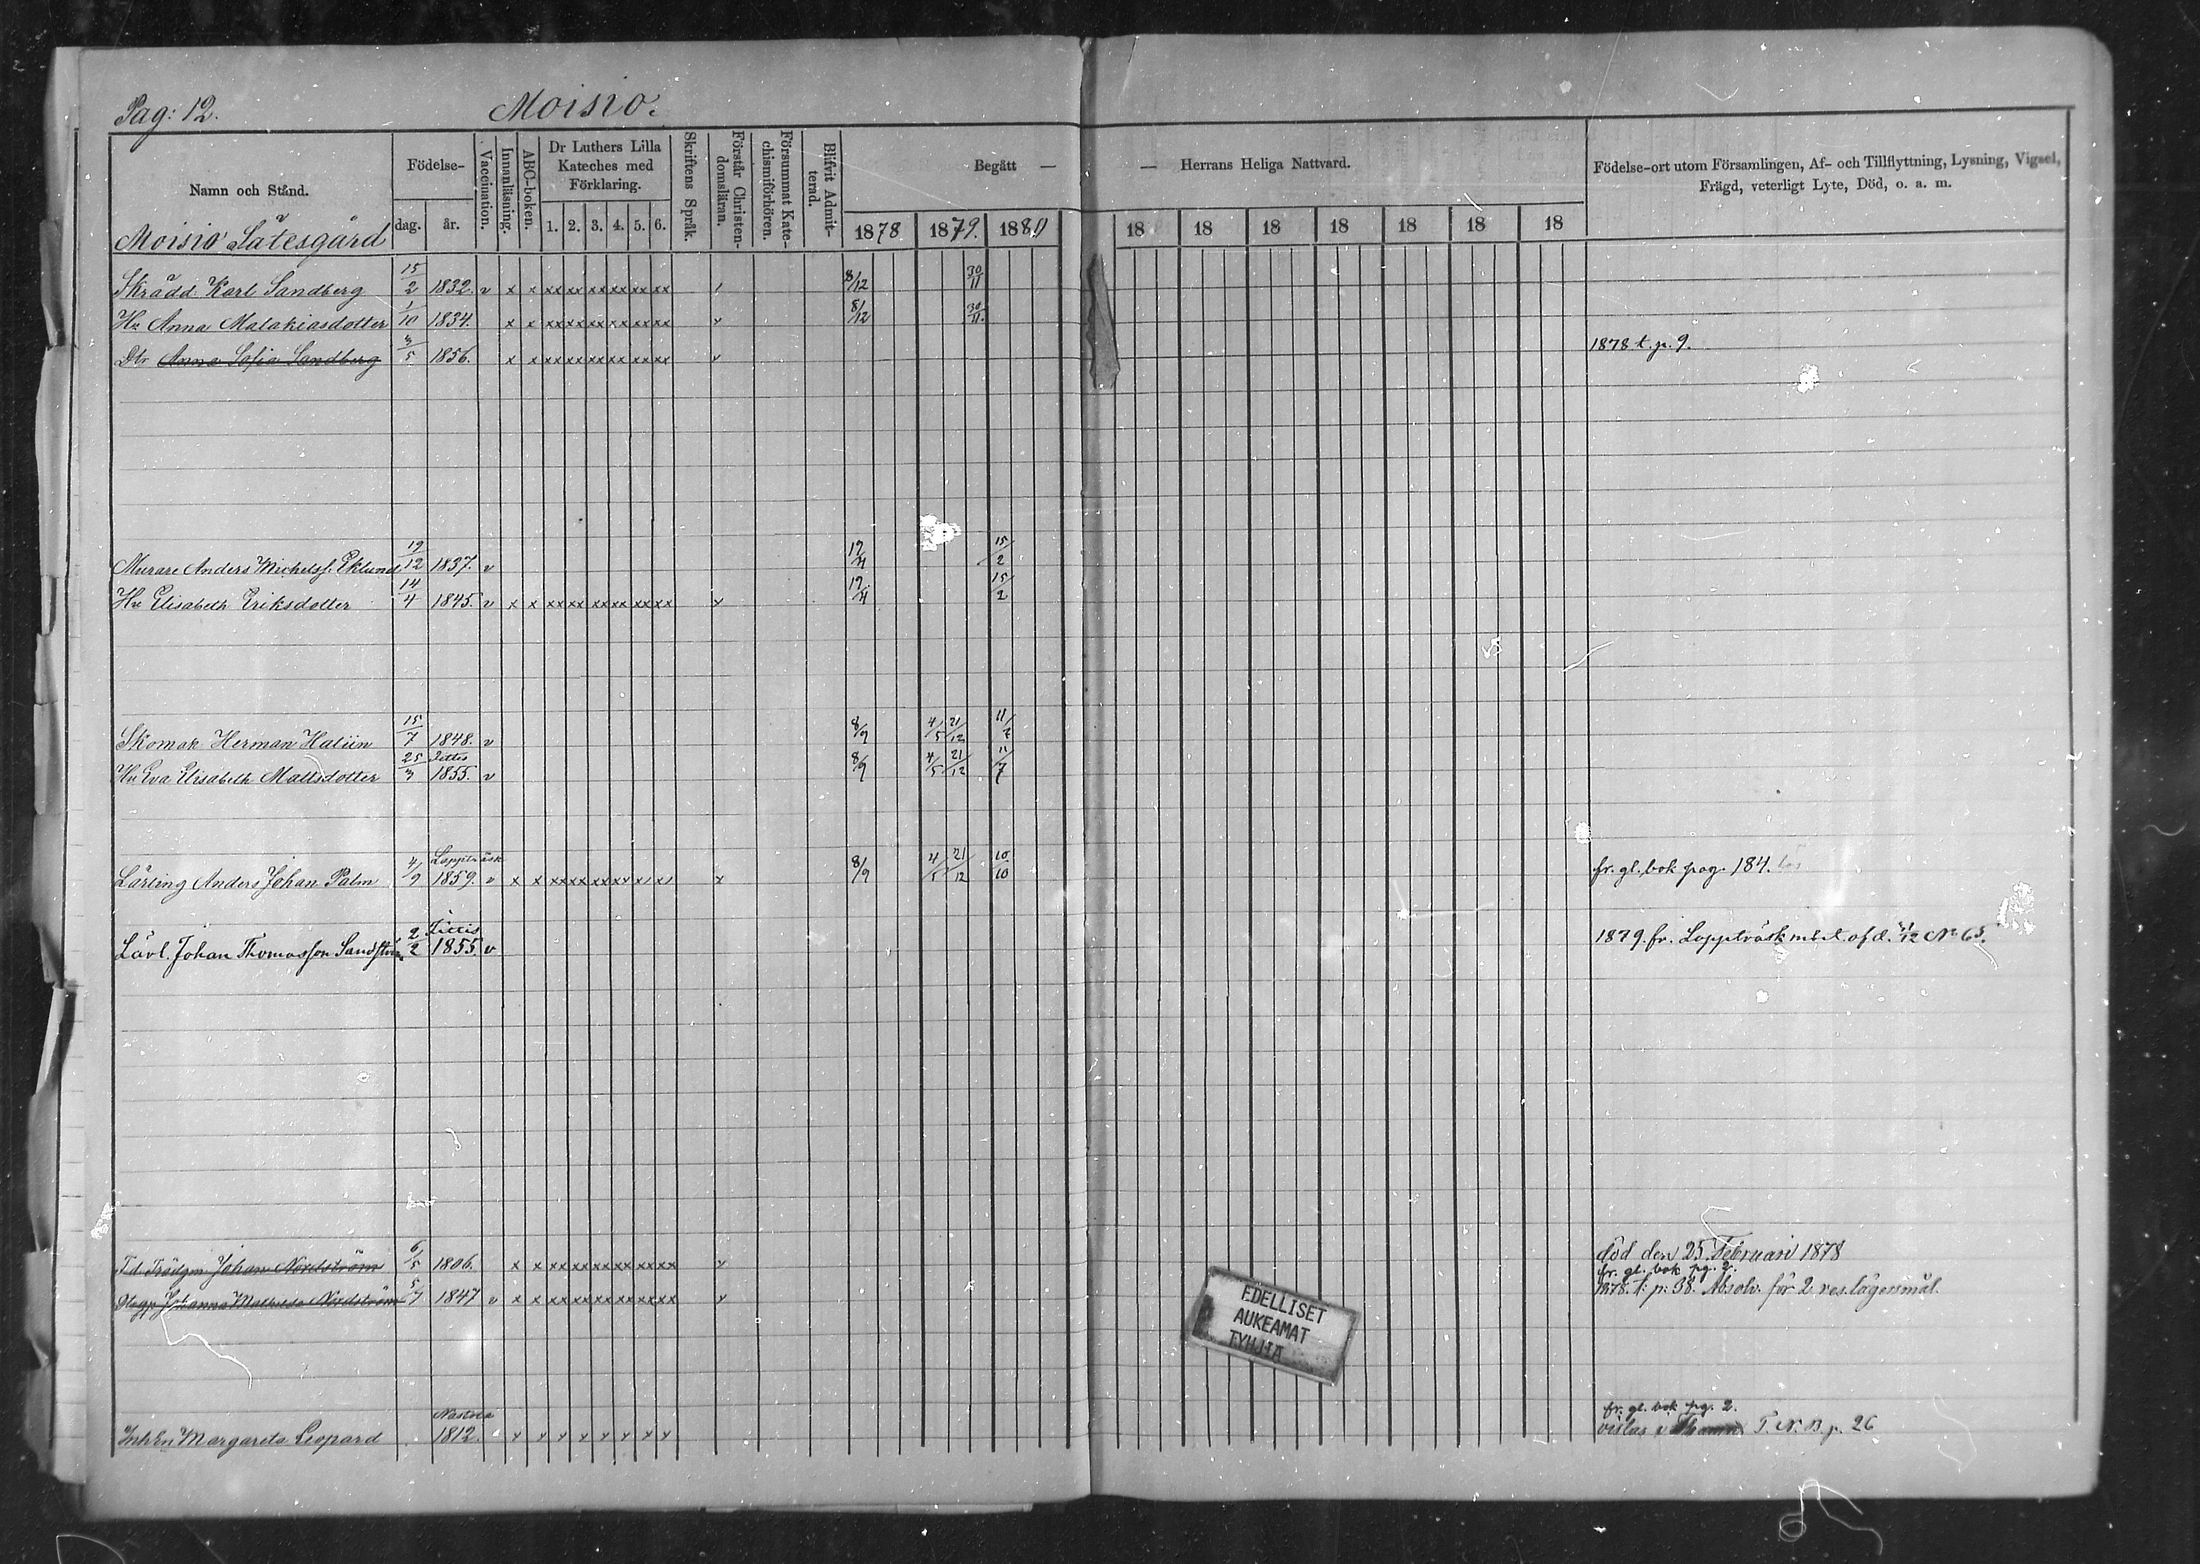 Pag: 12. Moisio.
Namn och Stånd. Födelse- Vaccination. Innanläsning. ABC-boken. Dr Luthers Lilla Kateches med Förklaring. Skriftens Språk. Förstår Christen-domsläran. Försummat Kate-chismiförhören. Blifvit Admit-terad. Begått — — Herrans Heliga Nattvard. Födelse-ort utom Församlingen, Af- och Tillflyttning, Lysning, Vigsel, Frägd, veterligt Lyte, Död, o. a. m.
dag. år. 1. 2. 3. 4. 5. 6. 1878 1879. 1880 18 18 18 18 18 18 18
Moisio Sätesgård
Skrädd. Karl Sandberg 15/2 1832. v x x xx xx xx xx xx xx 8/12 30/11
Hu Anna Malakiasdotter 1/10 1834. x x xx xx xx xx xx xx x 8/12 30/11.
Dtr Anna Sofia Sandberg 3/5 1856. x x xx xx xx xx xx xx x 1878 t. p. 9.
Murare Anders Michelsf. Eklund 19/12 1837. v 19/4 15/2
Hu Elisabeth Eriksdotter 14/4 1845. v x x xx xx xx xx xx xx x 19/4 15/2
Skomak Herman Haliin 15/7 1848. v 8/9 4/5 21/12 11/7
Hu Eva Elisabeth Mattsdotter 25/3 Jittis 1855. v 8/9 4/5 21/12 11/7
Lärling Anders Johan Palm 4/9 Lappträsk 1859. v x x xx xx xx xx x x x 8/9 4/5 21/12 10/10 fr. gl. bok pag. 184.
Lärl. Johan Thomasson 2/2 Jittis 1855. v 1879. fr. Lappträsk m. bet. af d. /12 No 65.
Johan Nordström 6/5 1806. x x xx xx xx xx xx xx x död den 25 Februari 1878
fr. gl. bok pg. 2.
Johanna Mathilda Nordström 5/7 1847 v x x xx xx xx xx xx xx x 1878. t. p. 38. Absolv. för 2 res. lägersmål.
EDELLISET
AUKEAMAT
TYHJIÄ
fr. gl. bok pg. 2.
Inh Margareta Leopard Nastola 1812. x x x x x x x x vistas i T. N. B. p. 26